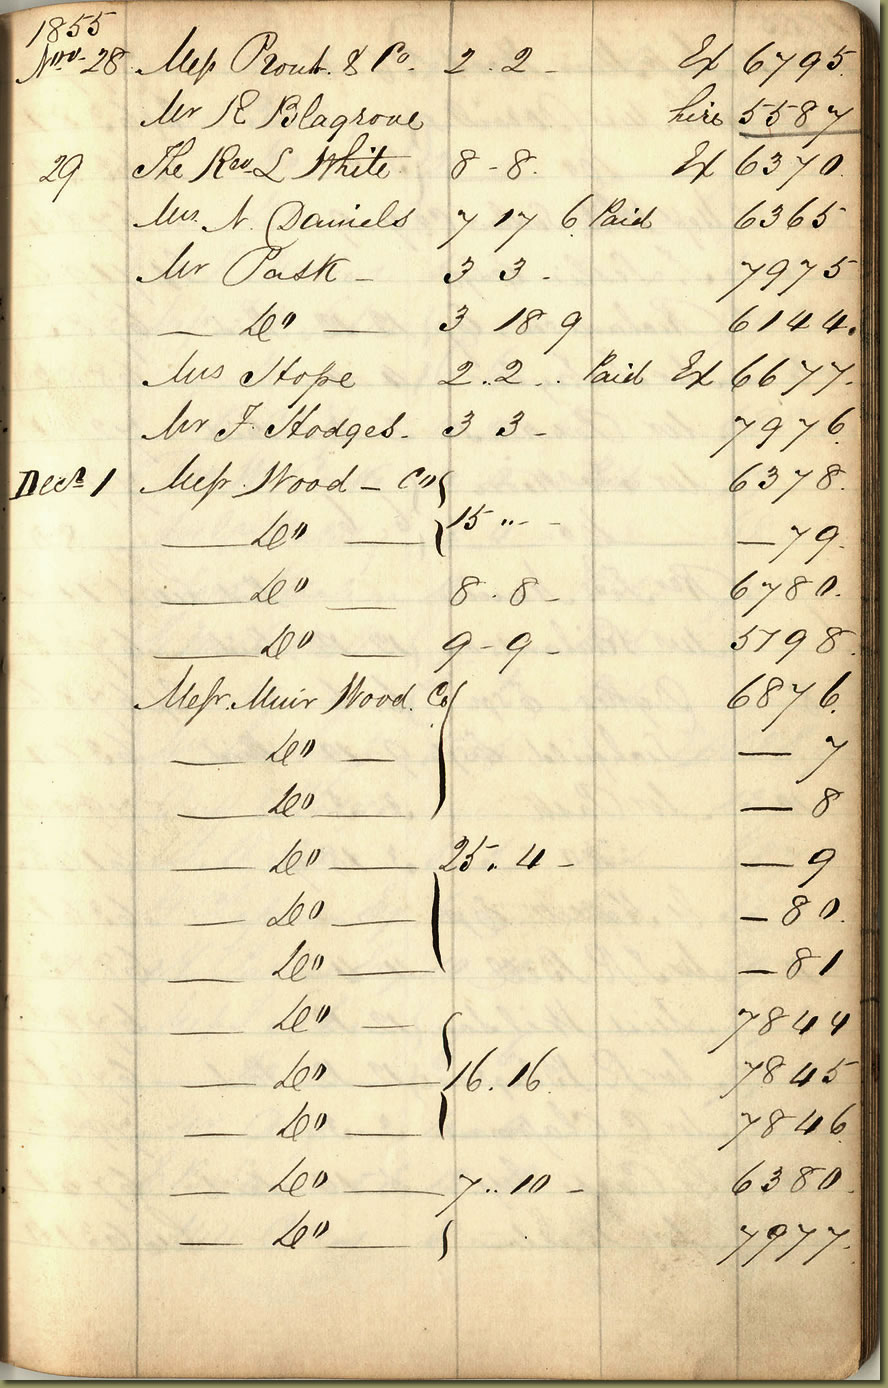 1855
Nov. 28 Mess Prout & Co. 2 . 2 - Ex 6795
Mr R Blagrove hire 5587
29 The Rev. L White 8 - 8. Ex 6370.
Mrs. N. Daniels 7 17 6 Paid 6365
Mr Pask - 3 3 - 7975
— Do — 3 18 9 6144.
Mrs Hope 2..2 .. Paid Ex 6677.
Mr F. Hodges. 3 3 - 7976
Decr 1 Messr. Wood - Co { 6378.
— Do — { 15 ,, - - — 79.
— Do — 8 . 8 - 6780.
— Do — 9 - 9 - 5798.
Messr. Muir Wood. Co { 6876.
— Do — — 7
— Do — — 8
— Do — 25. 4 - — 9
— Do — — 80.
— Do — — 81
— Do — { 7844
— Do — 16. 16 7845
— Do — 7846
— Do — 7.. 10 - 6380.
— Do — { 7977.